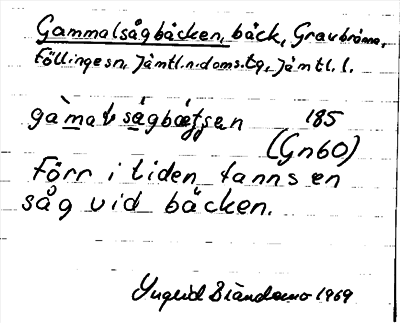 Gammalsågbäcken, bäck, Gravbränna,
Föllinge sn, Jämtl. n. doms. tg, Jämtl. l.
gàmalsågbäcken 185
(Gn60)
Förr i tiden fanns en
såg vid bäcken.
Yngvid 1969